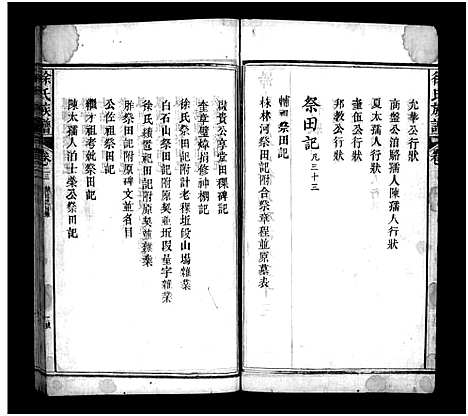 徐氏族譜
允華公行狀
商盤公洎駱孺人陳孺人行狀
夏太孺人行狀
蓮伍公行狀
邦教公行狀
祭田記 凡三十三
輔祖祭田記
林林河祭田記附合祭章程並原墓表
以貴公享堂田稞碑記
奎章璧焯捐修神棚記
徐氏祭田記附計老程坵段山場雜業
白石山祭田記附原契並坵段量字雜業
徐氏續置祀田記附原契並雜業
胙祭田記附原碑文並名目
公佐祖祭田記
繼才祖考妣祭田記
陳太孺人洎士葵公祭田記
徐氏族譜
卷